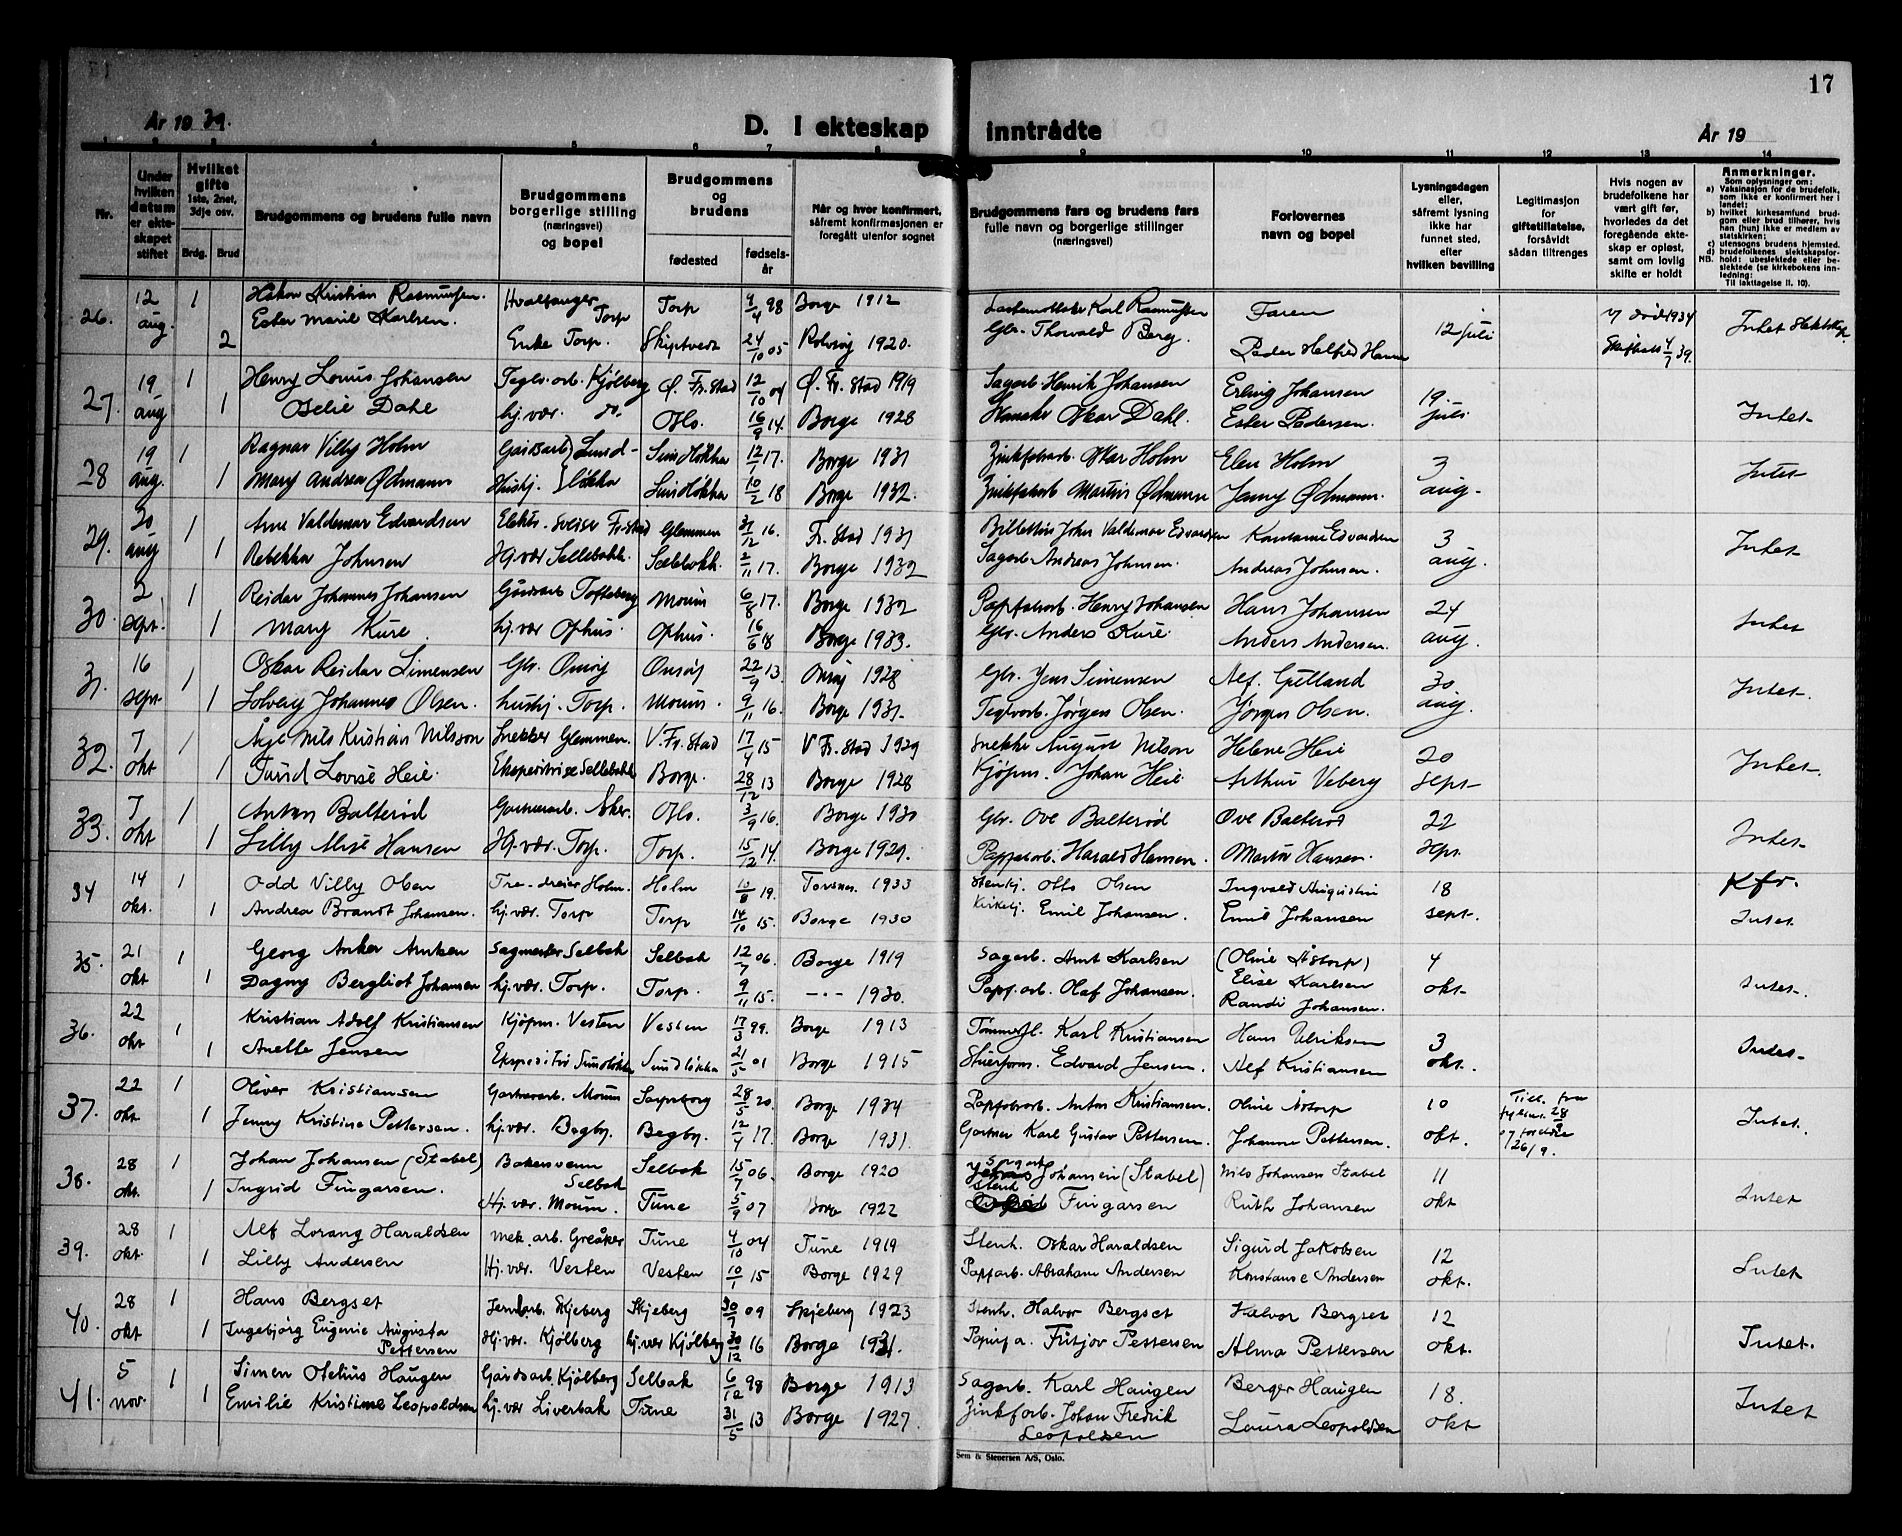 17
År 19 39.
D. I ekteskap inntrådte
År 19
1 2 3 4 5 6 7 8 9 10 11 12 13 14
Nr.
Under hvilken datum er ekteskapet stiftet
Hvilket gifte 1ste, 2net, 3dje osv.
Brdg. Brud
Brudgommens og brudens fulle navn
Brudgommens borgerlige stilling (næringsvei) og bopel
Brudgommens og brudens
fødested
fødselsår
Når og hvor konfirmert, såfremt konfirmasjonen er foregått utenfor sognet
Brudgommens fars og brudens fars fulle navn og borgerlige stillinger (næringsvei)
Forlovernes navn og bopel
Lysningsdagen eller, såfremt lysning ikke har funnet sted, efter hvilken bevilling
Legitimasjon for giftetillatelse, forsåvidt sådan tiltrenges
Hvis nogen av brudefolkene har vært gift før, hvorledes da det foregående ekteskap er opløst, samt om lovlig skifte er holdt
Anmerkninger.
Som oplysninger om:
a) Vaksinasjon for de brudefolk, som ikke er konfirmert her i landet;
b) hvilket kirkesamfund brudgom eller brud tilhører, hvis han (hun) ikke er medlem av statskirken;
c) utensogns brudens hjemsted.
d) brudefolkenes slektskapsforhold: ubeslektede eller beslektede (se kirkebokens innledning:
NB. Til iakttagelse II. 10).
26. 12 aug. 1 Håkon Kristian Rasmussen. Hvalfanger Torp Torp 9/4 98 Borge 1912 Karl Rasmussen Faren 12 juli død 1934 Intet
2 Ester Marie Karlsen. Enke Torp. Skiptvedt 24/10 05 Rolvsøy 1920. Gbr. Thorvald Berg. Peder 39.
27. 19 aug 1 Henry Louis Johansen Tegls.arb. Kjølberg Ø. Fr.stad 12/10 04 Ø. Fr. stad 1919 Sagarb. Henrik Johansen Erling Johansen 19. juli Intet
1 Oselie Dahl hj.vær. do. Oslo. 16/9 14. Borge 1928 Oskar Dahl. Ester Pedersen.
28 19 aug. 1 Ragnar Villy Holm Gårdsarb. Sundløkka Sundløkka 12/1 17. Borge 1931 Zinkfabarb. Oskar Holm Elen Holm 3 aug. Intet
1 Mary Andrea Ødmann Hushj. Sundløkka 10/2 18 Borge 1932. Zinkfabarb. Martin Ødmann Jenny Ødmann.
29. 20 aug 1 Arne Valdemar Edvardsen Elektr. sveiser Fr.stad Glemmen 31/12 16. Fr. Stad 1931 Billettør Johan Valdemar Edvardsen Konstanse Edvardsen 3 aug. Intet
1 Rebekka Johnsen Hj.vær Sellebakk. Sellebakk. 2/11 17. Borge 1932 Sagarb. Andreas Johnsen. Andreas Johnsen.
30. 2 sept. 1 Reidar Johannes Johansen Gårdsarb. Tofteberg Moum 6/8 17. Borge 1932 Papfabarb. Henry Johansen Hans Johansen 24 aug. Intet
1 Mary Kure. hj.vær Ophus. Ophus. 16/6 18 Borge 1933. Gbr. Anders Kure. Anders Andersen.
31. 16 sept. 1 Oskar Reidar Simensen Gbr. Onsøy Onsøy 22/9 13. Onsøy 1928 Gbr. Jens Simensen Alf. Gulland 30 aug. Intet.
1 Solveig Johanne Olsen. hushj. Torp. Moum. 9/11 16. Borge 1931. Teglvarb. Jørgen Olsen. Jørgen Olsen.
32. 7 okt 1 Åge Nils Kristian Nilsson Snekker Glemmen. V. Fr. Stad 17/4 15 V Fr. Stad 1929 Snekker August Nilson Helene Heie 20 sept Intet.
1 Turid Lovise Heie. Ekspeditrise Sellebakk Borge. 28/12 13 Borge 1928 Kjøpm. Johan Heie Arthur Veberg
33. 7 okt 1 Anton Balterød Gartnerarb. Aker. Oslo. 3/9 16. Borge 1930 Gbr. Ove Balterød Ove Balterød 22 sept. Intet.
1 Lilly Alise Hansen Hj.vær. Torp. Torp. 15/12 14. Borge 1929. Papfabarb. Harald Hansen. Martin Hansen.
34 14 okt. 1 Odd Villy Olsen Tre-dreier Holm. Holm 10/8 19. Torsnes. 1933 Stenhj. Otto Olsen Ingvald Augustin 18 sept. Kfr.
1 Andrea Brandt Johansen. hj.vær. Torp Torp 14/10 15. Borge 1930 Kirketj. Emil Johansen. Emil Johansen Intet.
35. 21 okt 1 Georg Anker Arntzen Sagmester Selbak Selbak 12/7 06. Borge 1919 Sagarb. Arnt Karlsen (Oline Åstorp) Elise Karlsen 4 okt Intet.
1 Dagny Bergliot Johansen hj.vær. Torp. Torp. 9/11 15. –·– 1930. Papf.arb. Olaf Johansen. Randi Johansen.
36. 22 okt 1 Kristian Adolf Kristiansen Kjøpm. Vesten Vesten 17/3 99. Borge 1913 Tømmerfl. Karl Kristiansen Hans Ulriksen 3 okt. Intet.
1 Anette Jensen Ekspeditri Sundløkka Sundløkka 21/5 01 Borge 1915 Stuerform. Edvard Jensen. Alf Kristiansen
37. 22 okt 1 Oliver Kristiansen Gartnerarb. Moum Sarpsborg 28/5 20. Borge 1934 Papfabarb. Anton Kristiansen. Oline Åstorp 10 okt. Till. fra fylkm. 28 og foreldre 26/9. Intet.
1 Jenny Kristine Pettersen. hj.vær. Begby. Begby. 12/4 17. Borge 1931. Gartner Karl Gustav Pettersen. Johanne Pettersen.
38. 28 okt. 1 Johan Johansen (Stabel) Bakersvenn Selbak Selbak 15/7 06. Borge 1920 Johansen (Stabel) Nils Johansen Stabel 11 okt Intet
1 Ingrid Fingarsen. Hj.vær. Moum. Tune 5/9 07 Borge 1922 Stenh. Fingarsen Ruth Johansen
39. 28 okt. 1 Alf Lorang Haraldsen mek. arb. Greåker Tune 4/10 04 Tune 1919 Stenh. Oskar Haraldsen Sigurd Jakobsen 12 okt. Intet
1 Lilly Andersen Hj.vær. Vesten Vesten 10/1 15 Borge 1929 Papfarb. Abraham Andersen Konstanse Andersen
40. 28 okt 1 Hans Bergset Jernb.arb. Skjeberg Skjeberg 30/7 09 Skjeberg 1923 Stenh. Halvor Bergset Halvor Bergset 12 okt. Intet.
1 Ingebjørg Eugenie Augusta Pettersen Hj.vær. Kjølberg hj.vær Kjølberg 30/12 16 Borge 1931. Fritjov Pettersen Alma Pettersen
41. 5 nov. 1 Simen Otelius Haugen Gårdsarb. Kjølberg Selbak 6/12 98 Borge 1913 Sagarb. Karl Haugen Berger Haugen 18. okt Intet
1 Emilie Kristine Leopoldsen hj.vær Liverbak Tune 31/5 13 Borge 1927. Zinkfarb. Johan Fredrik Leopoldsen Laura Leopoldsen
Sem & Stenersen A/S, Oslo.